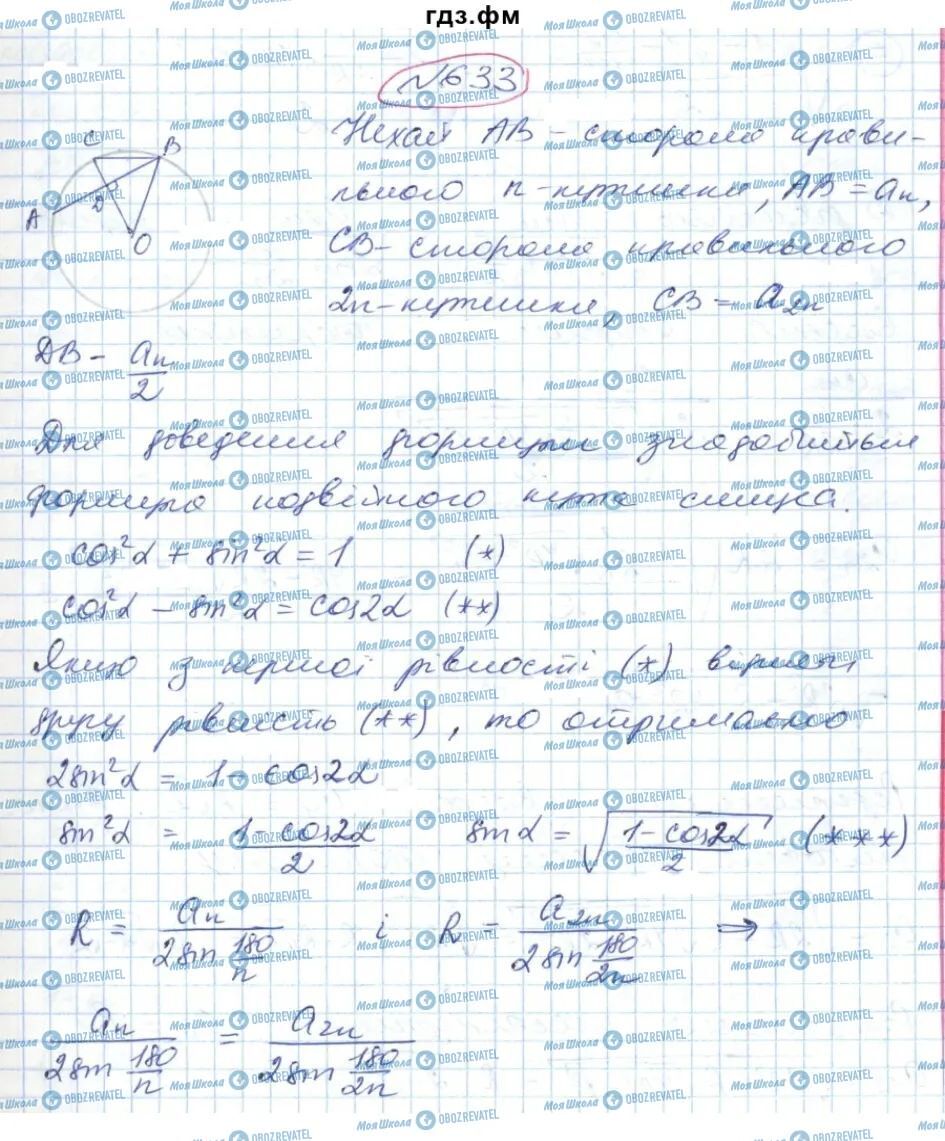 гдз.фм
№633
C B
A 2 O
Нехай AB - сторона прави-
льного n-кутника, AB = aₙ,
CB - сторона правильного
2n-кутника, CB = a₂ₙ
DB - aₙ/2
Для доведення формули знадобиться
формула подвійного кута синуса.
cos²α + sin²α = 1 (*)
cos²α - sin²α = cos2α (**)
Якщо з першої рівності (*)
другу рівність (**), то отримаємо
2sin²α = 1 - cos2α
sin²α = (1 - cos2α)/2 sinα = √((1 - cos2α)/2) (***)
R = aₙ/(2sin 180/n) і R = a₂ₙ/(2sin 180/2n) ⇒
aₙ/(2sin 180/n) = a₂ₙ/(2sin 180/2n)
Моя Школа OBOZREVATEL